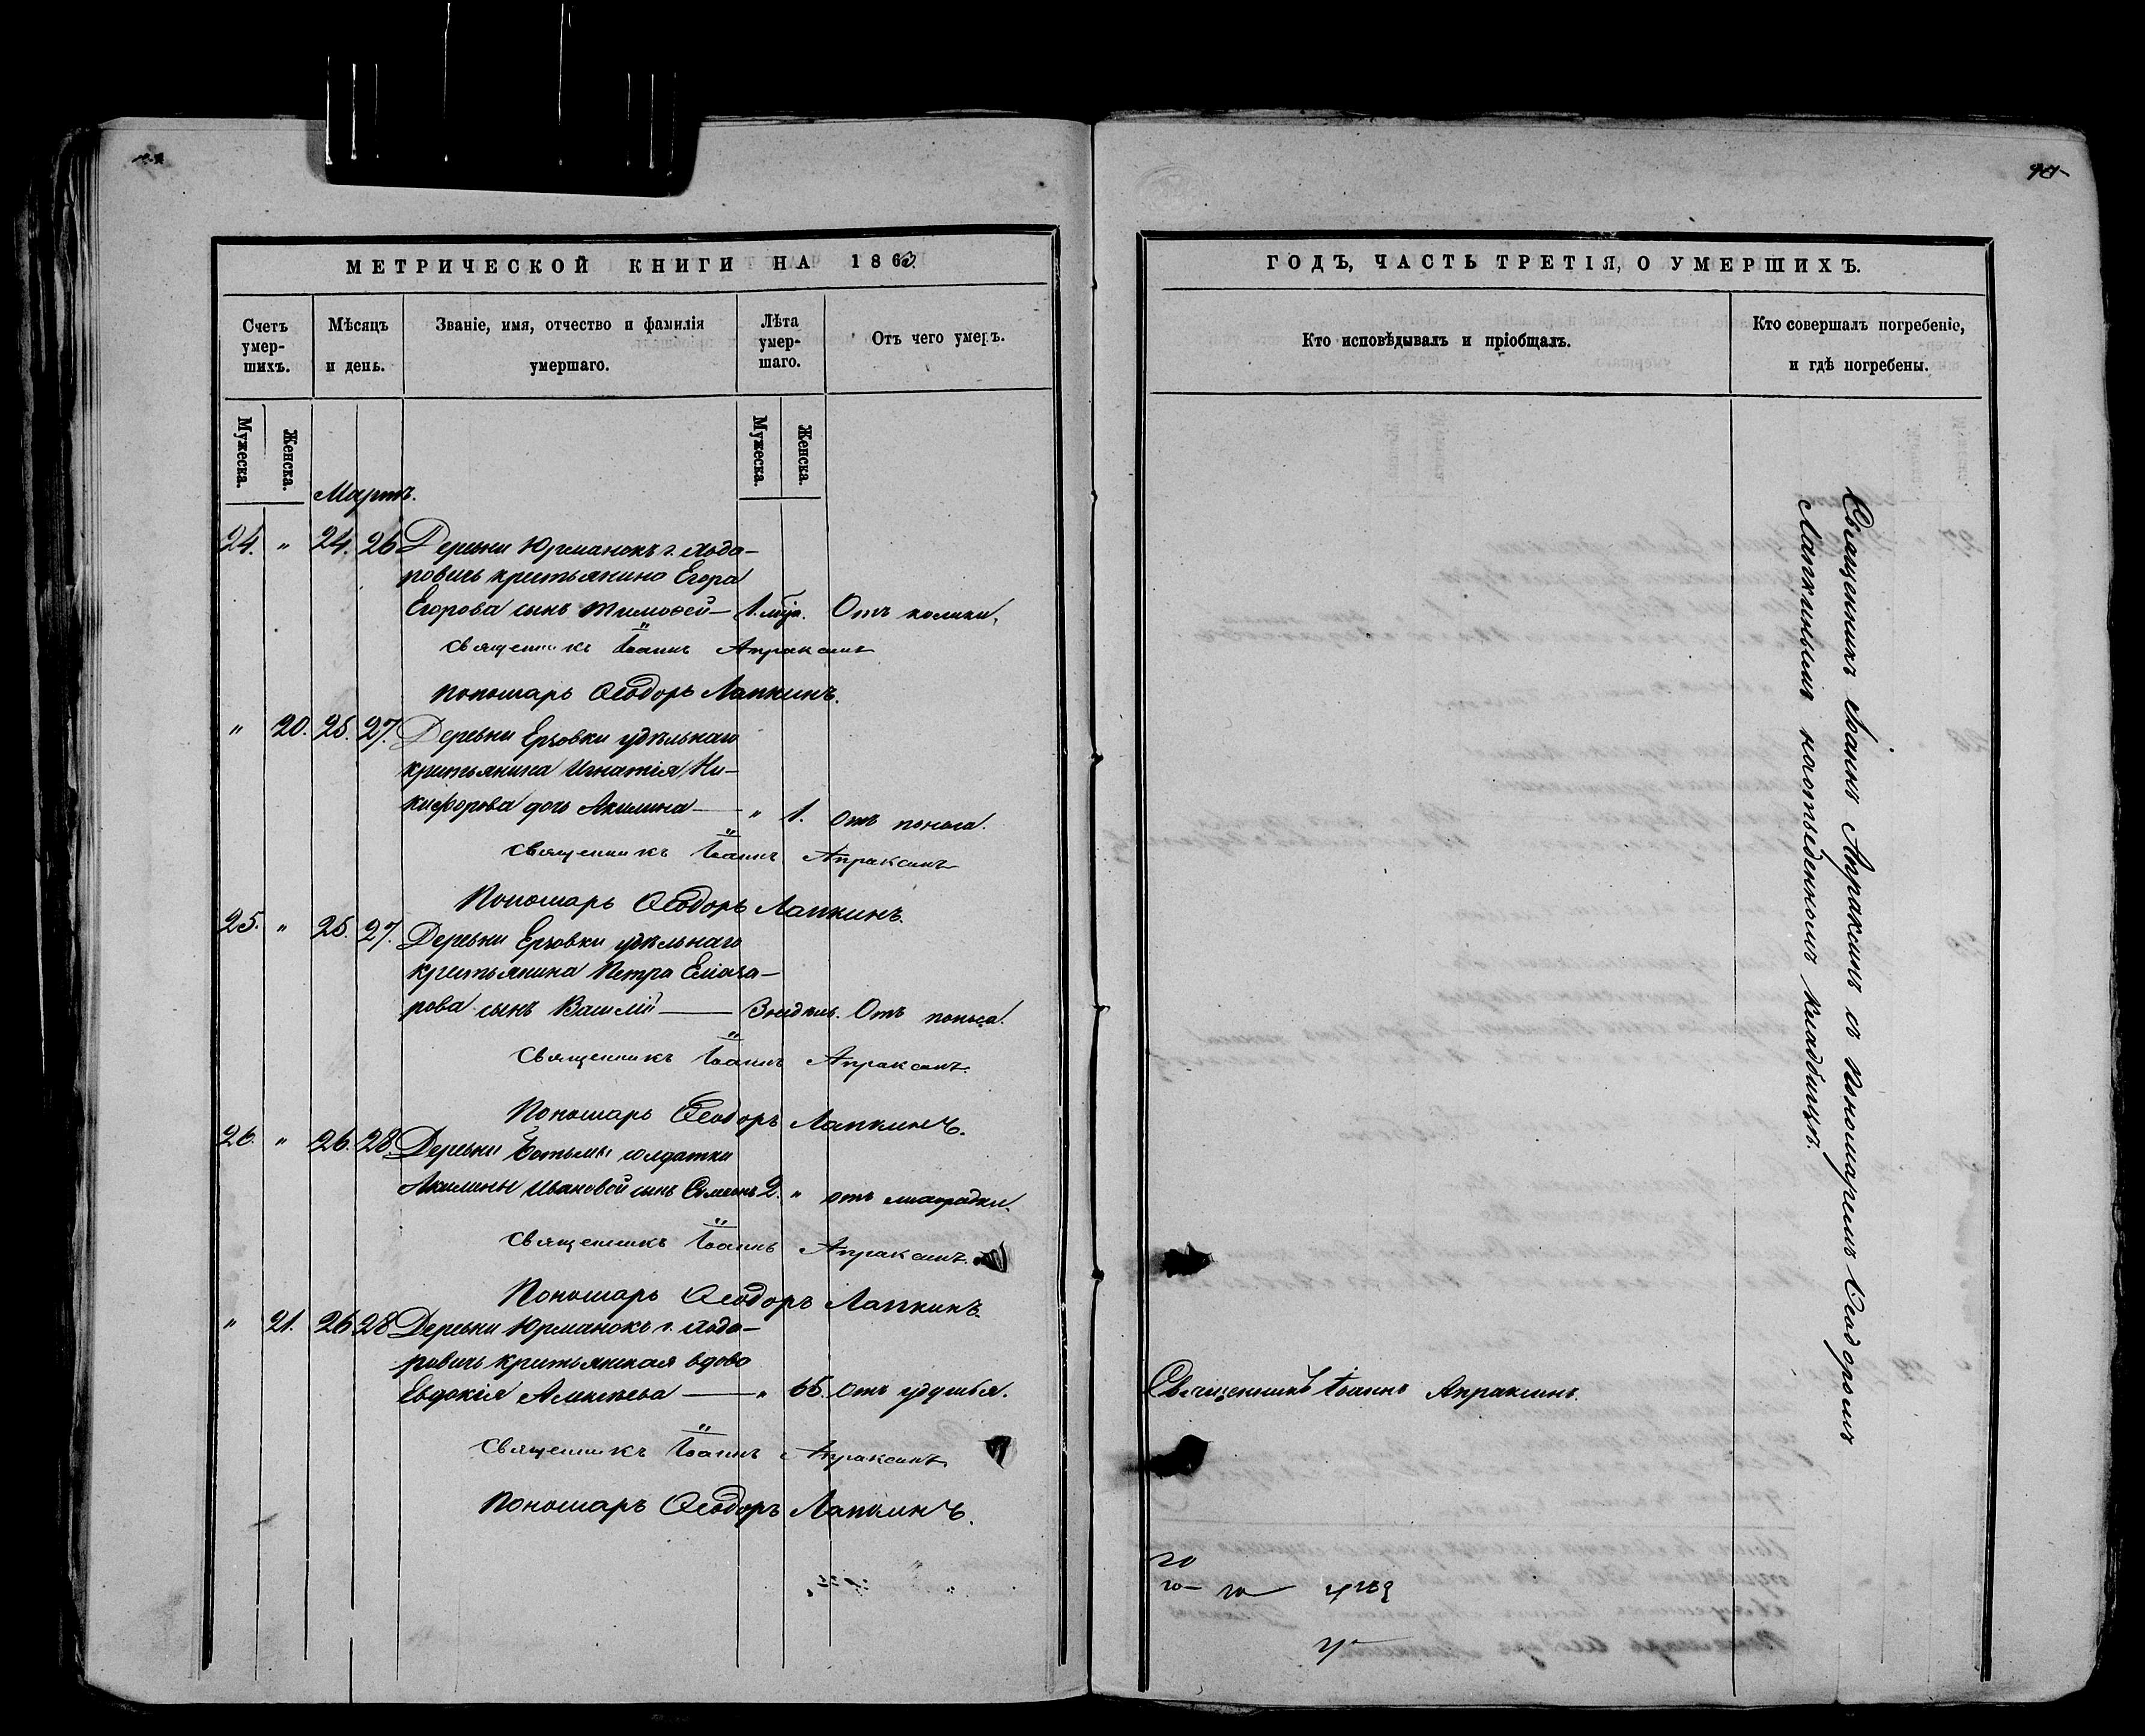 МЕТРИЧЕСКОЙ КНИГИ НА 1863.
Счетъ умер-шихъ.
Мѣсяцъ и день.
Званіе, имя, отчество и фамилія умершаго.
Лѣта умер-шаго.
Отъ чего умеръ.
Мужеска.
Женска.
Мужеска.
Женска.
Мартъ.
24. " 24. 26 Деревни Юрманокъ г.
крестьянина Егора
Егорова сынъ Тимоѳей — 1. мѣс. Отъ колики.
Священникъ Іоаннъ Апраксинъ
Пономарь Ѳеодоръ Лапкинъ.
" 20. 25. 27. Деревни Ерзовки удѣльнаго
крестьянина Игнатія Ни-
кифорова дочь Акилина — " 1. Отъ поноса.
Священникъ Іоаннъ Апраксинъ
Пономарь Ѳеодоръ Лапкинъ.
25. " 25. 27. Деревни Ерзовки удѣльнаго
крестьянина Петра
рова сынъ Василій — 3 недѣль. Отъ поноса.
Священникъ Іоаннъ Апраксинъ.
Пономарь Ѳеодоръ Лапкинъ.
26. " 26. 28. Деревни Ботьмы солдатки
Акилины Ивановой сынъ Симеонъ 2. " отъ лихорадки.
Священникъ Іоаннъ Апраксинъ.
Пономарь Ѳеодоръ Лапкинъ.
" 21. 26 28 Деревни Юрманокъ г.
крестьянская вдова
Евдокія Алексѣева — " 65. Отъ удушья.
Священникъ Іоаннъ Апраксинъ.
Пономарь Ѳеодоръ Лапкинъ.
ГОДЪ, ЧАСТЬ ТРЕТІЯ, О УМЕРШИХЪ.
Кто исповѣдывалъ и пріобщалъ.
Кто совершалъ погребеніе, и гдѣ погребены.
Священникъ Іоаннъ Апраксинъ съ Пономаремъ Ѳеодоромъ
Лапкинымъ на отведенномъ кладбищѣ.
Священникъ Іоаннъ Апраксинъ.